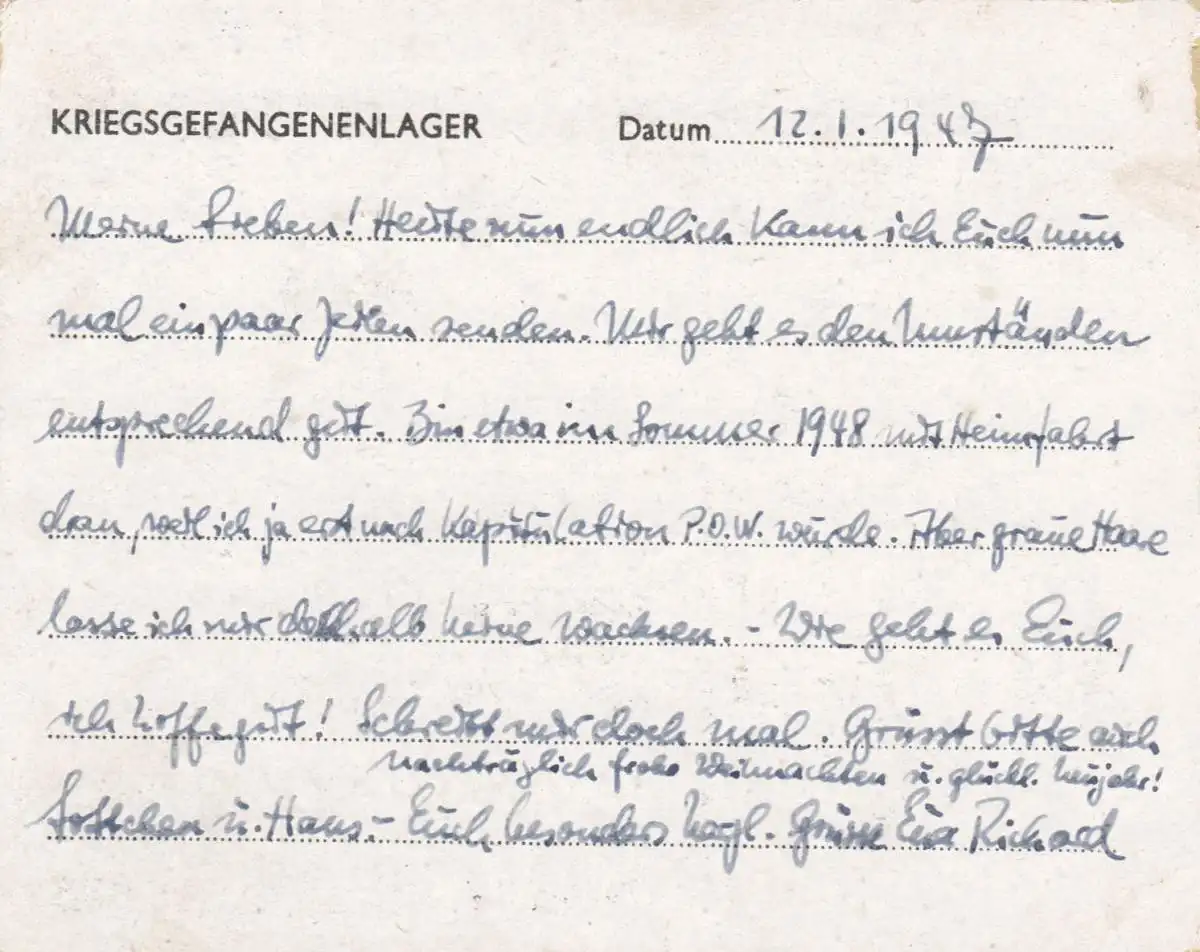 KRIEGSGEFANGENENLAGER Datum 12.1.1947
Meine Lieben! Heute nun endlich kann ich Euch nun
mal ein paar Zeilen senden. Mir geht es den Umständen
entsprechend gut. Bin etwa im Sommer 1948 mit Heimfahrt
dran, weil ich ja erst nach Kapitulation P.O.W. wurde. Aber graue Haare
lasse ich mir deshalb keine wachsen. - Wie geht es Euch,
ich hoffe gut! Schreibt mir doch mal. Grüsst bitte auch
nachträglich frohe Weihnachten u. glückl. Neujahr!
Lottchen u. Hans. - Euch besonders hzgl. Grüsse Euer Richard